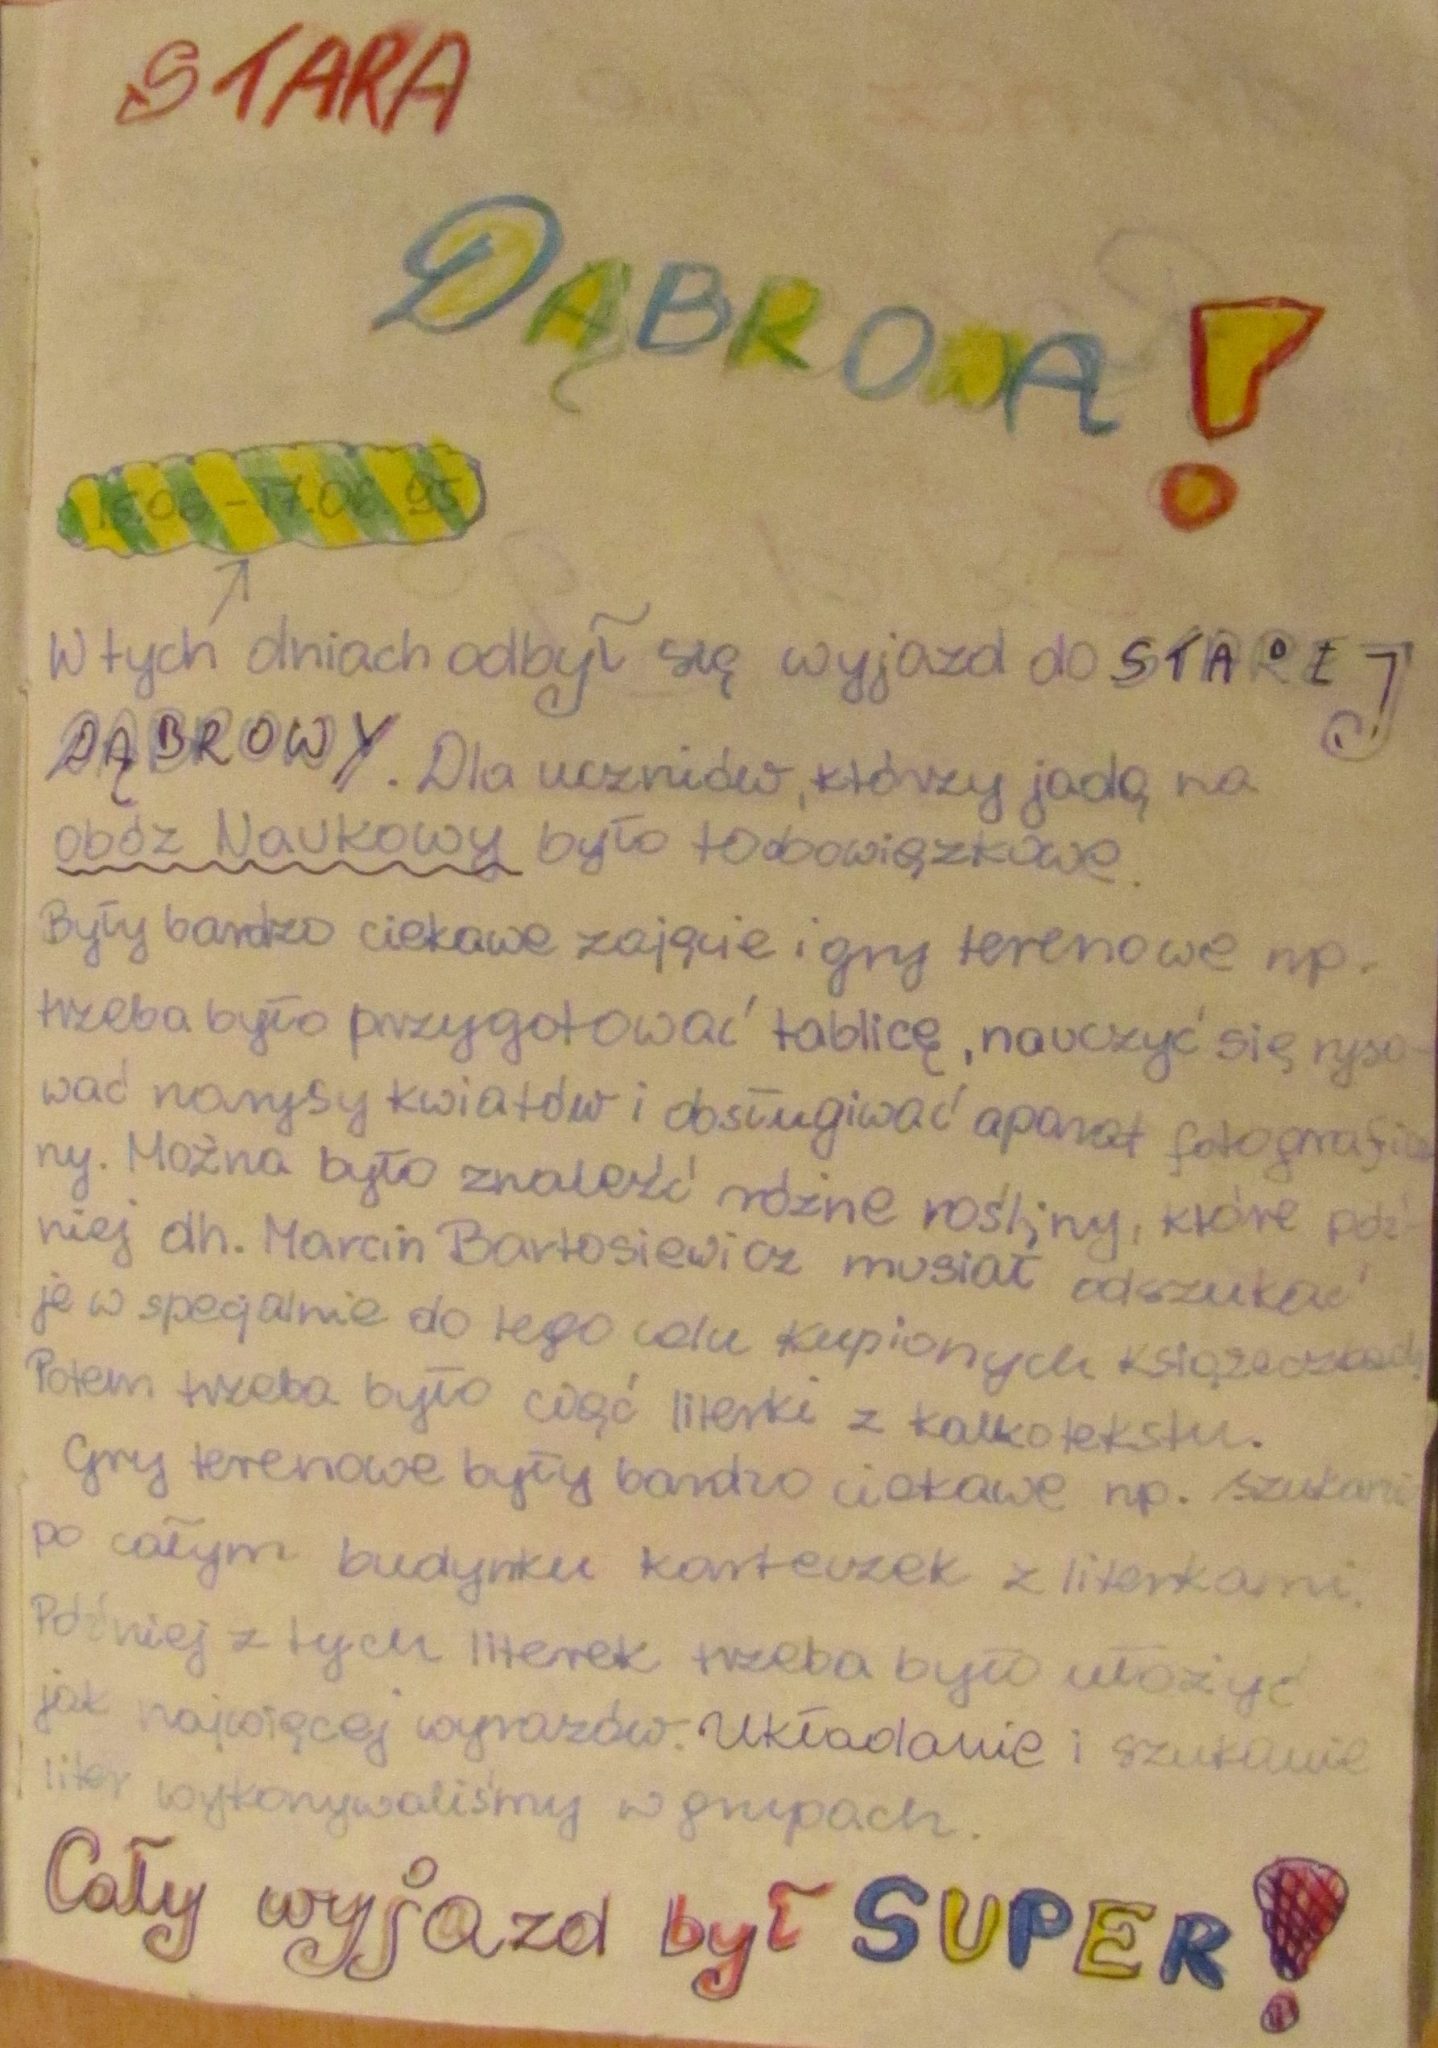 STARA
DĄBROWA!
15.06-17.06.95
W tych dniach odbył się wyjazd do STAREJ
DĄBROWY. Dla uczniów, którzy jadą na
obóz Naukowy było to obowiązkowe.
Były bardzo ciekawe zajęcie i gry terenowe np.
trzeba było przygotować tablicę, nauczyć się ryso-
wać narysy kwiatów i obsługiwać aparat fotograficz
ny. Można było znaleźć różne rośliny, które póź-
niej dh. Marcin Bartosiewicz musiał odszukać
je w specjalnie do tego celu kupionych książeczkach.
Potem trzeba było ciąć literki z kalkotekstu.
Gry terenowe były bardzo ciekawe np. szukani
po całym budynku karteczek z literkami.
Później z tych literek trzeba było ułożyć
jak najwięcej wyrazów. Układanie i szukanie
liter wykonywaliśmy w grupach.
Cały wyjazd był SUPER!